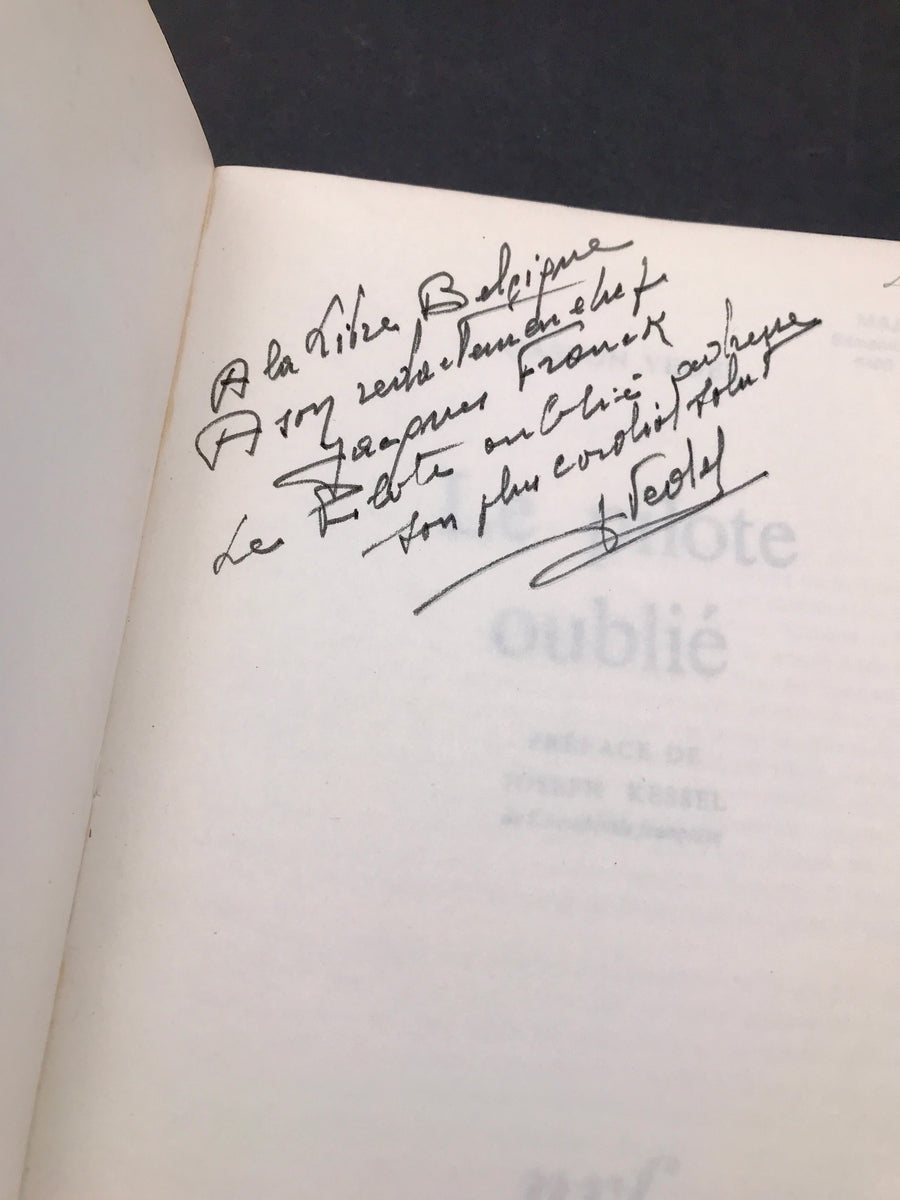 A la Libre Belgique
A son redacteur en chef
Jacques Franck
Le Pilote oublié adresse
son plus cordial salut
J. Vedel
Le pilote
oublié
PRÉFACE DE
JOSEPH KESSEL
de l'Académie française
nrf